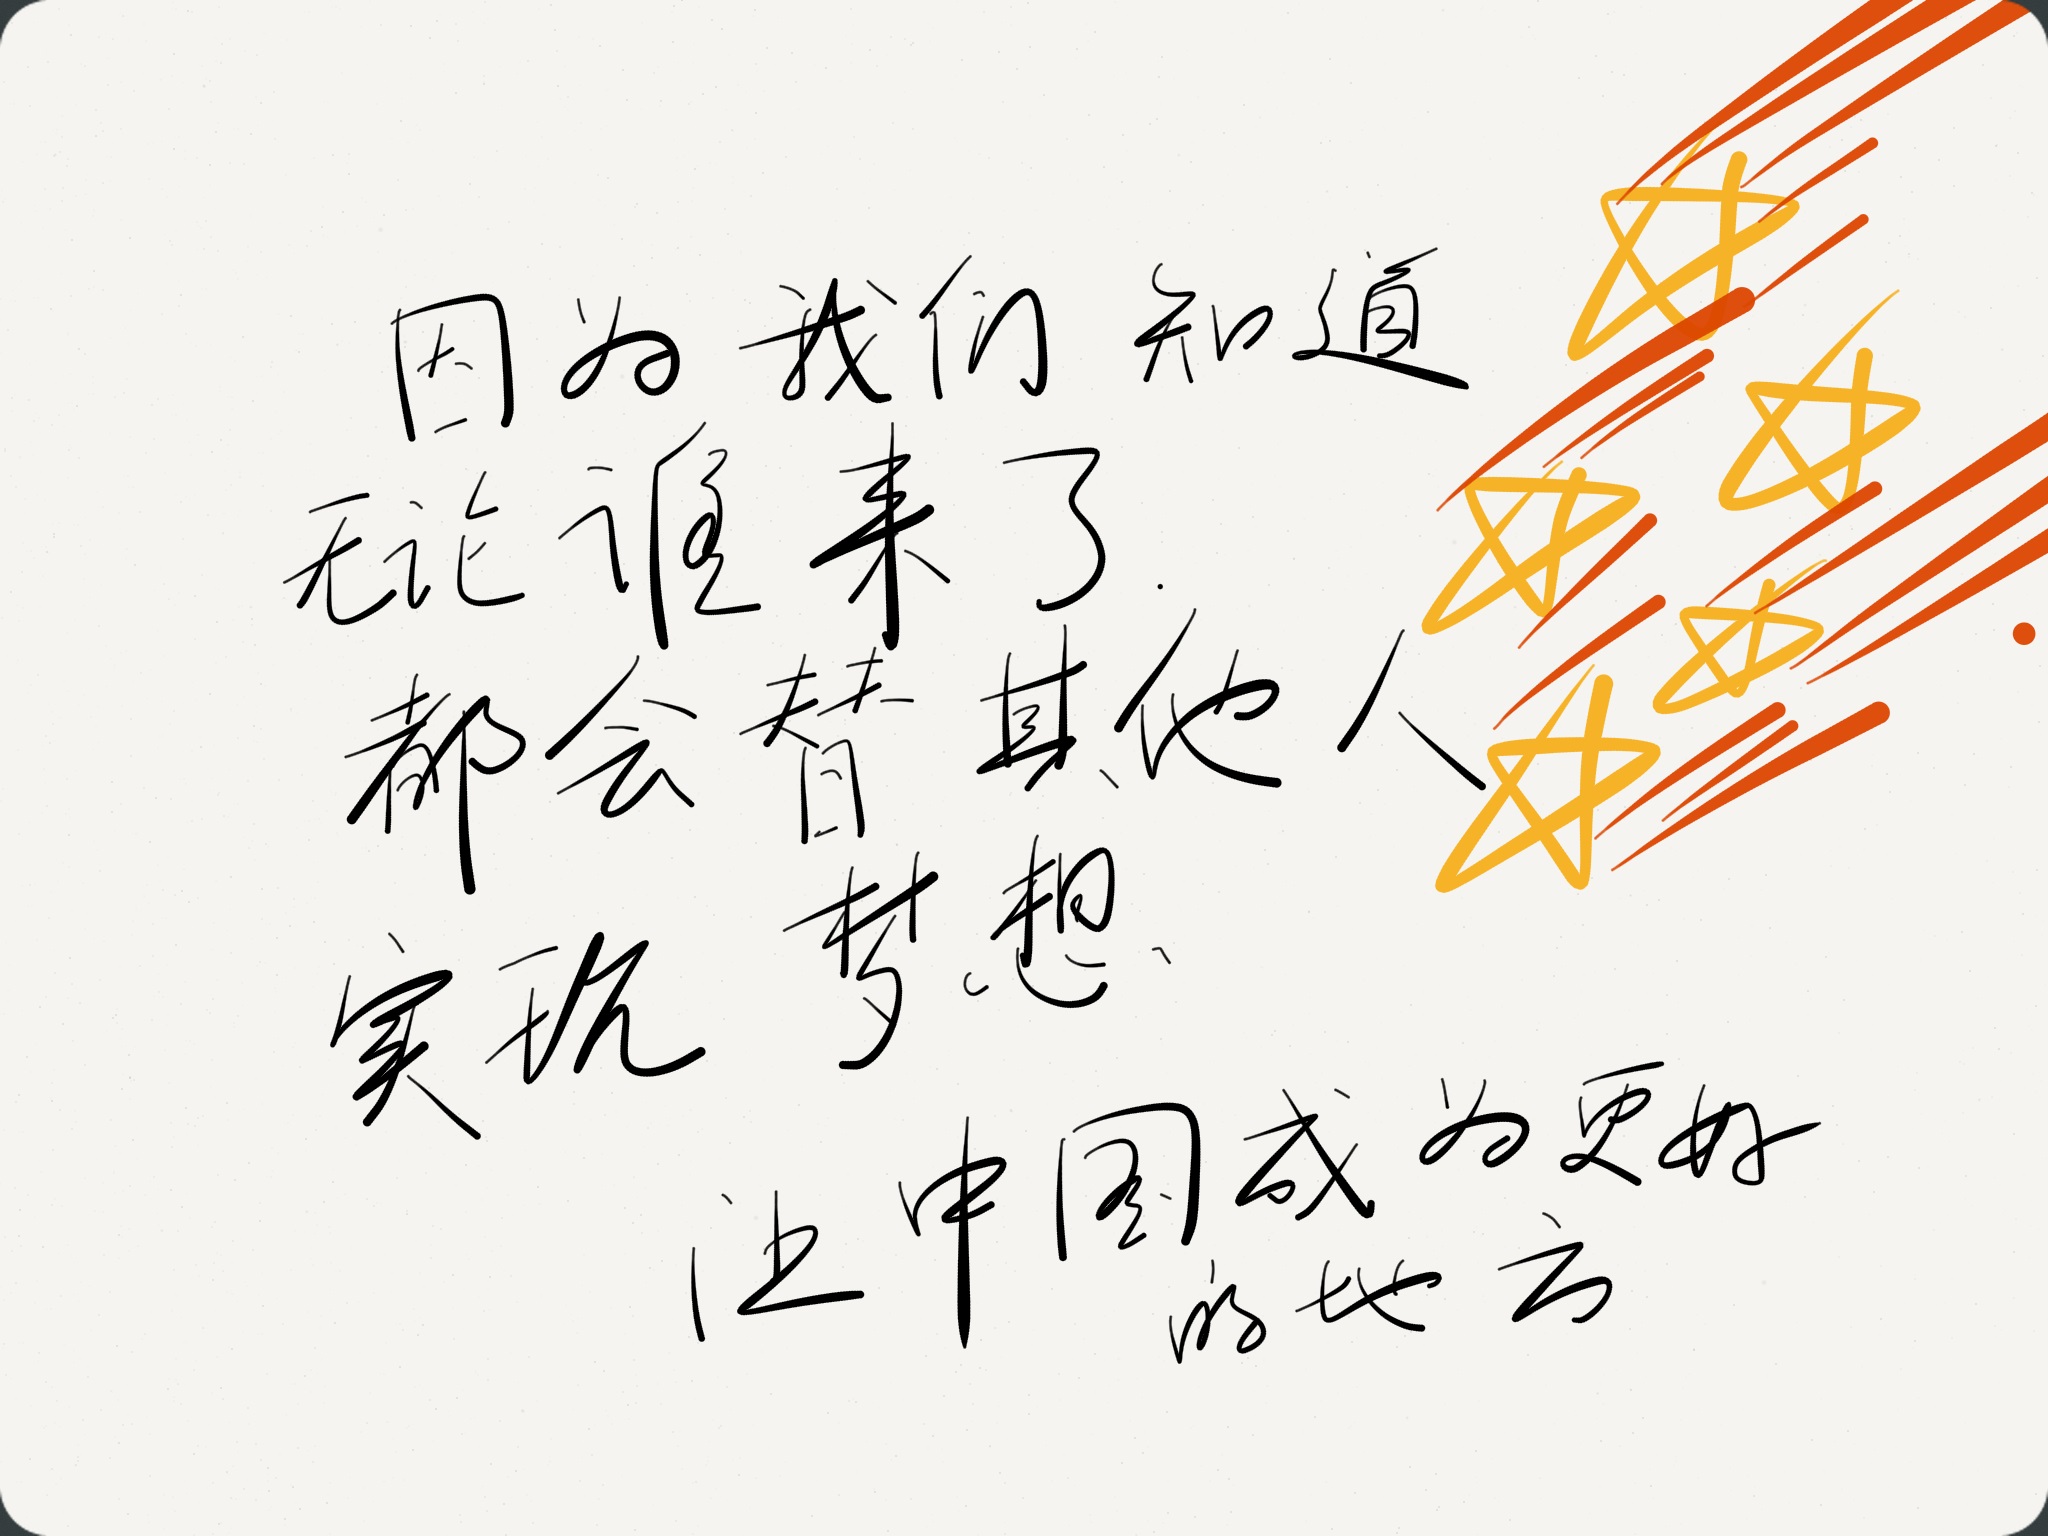 因为我们知道
无论谁来了
都会替其他人
实现梦想
让中国成为更好
的地方